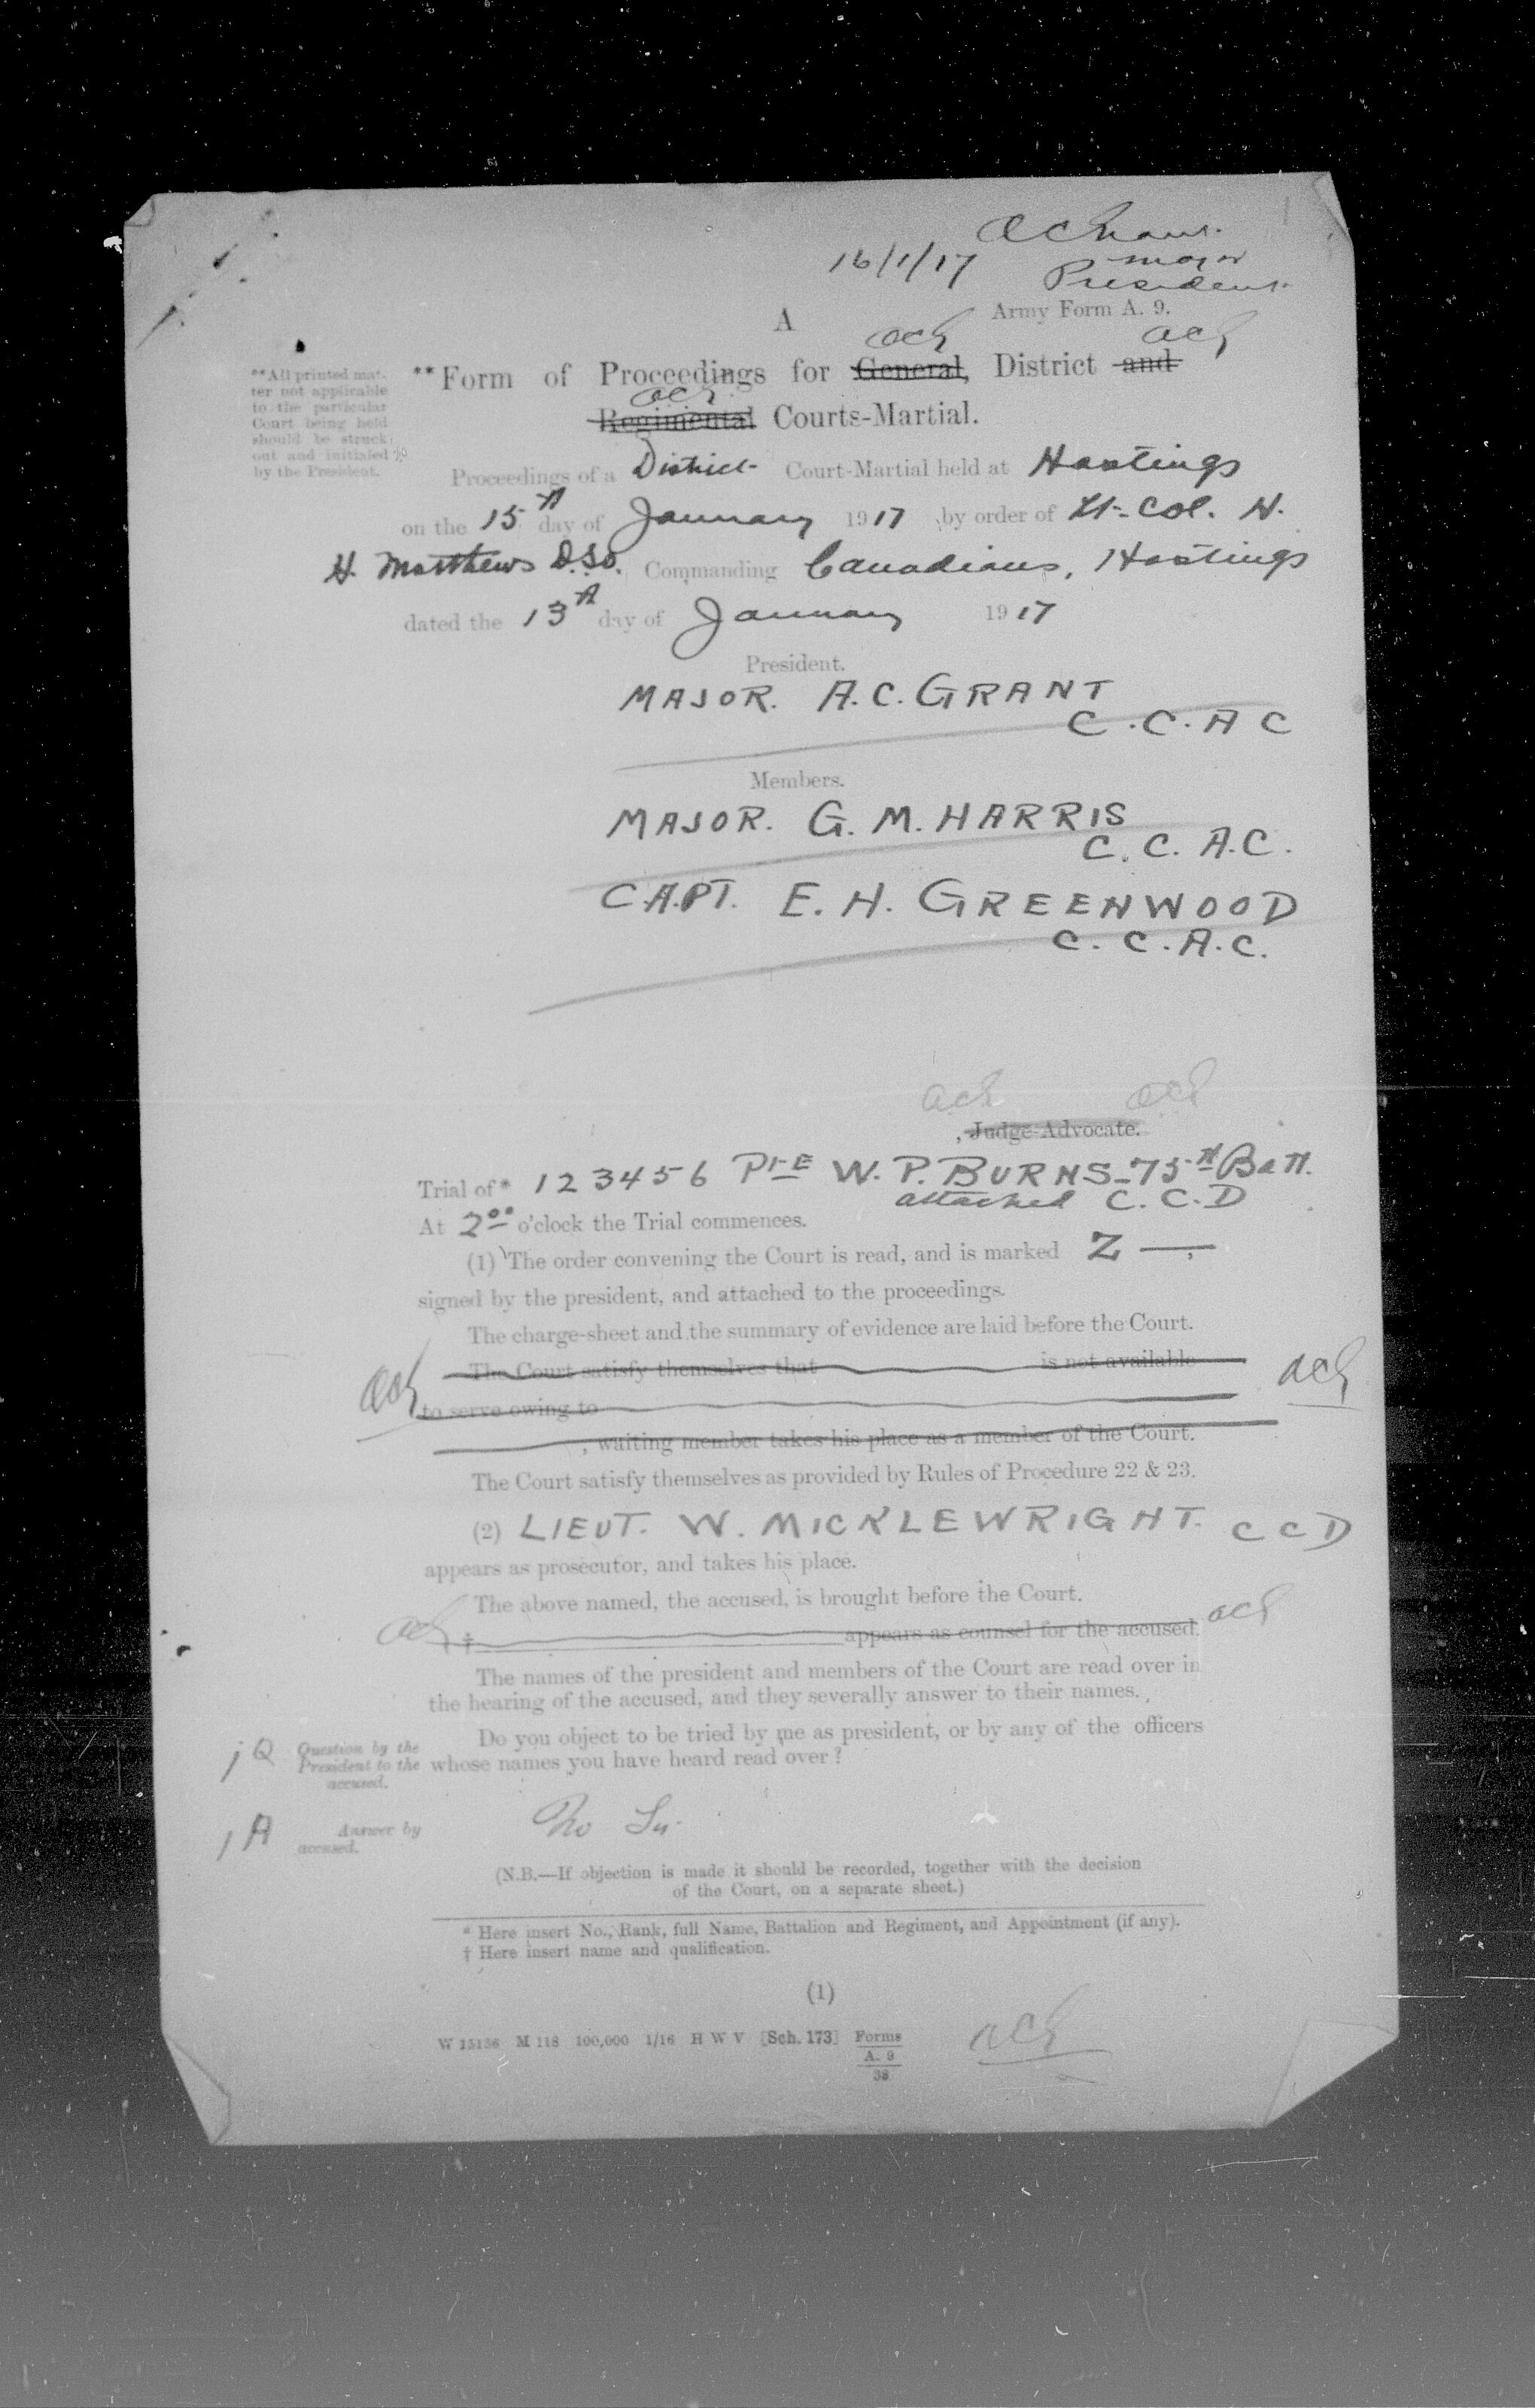 16/1/17
Major
President.
Army Form A. 9.
A
ACG ACG
**Form of Proceedings for General, District and
ACG
Regimental Courts-Martial.
**All printed mat-
ter not applicable
to the particular
Court being held
should be struck
out and initialed
by the President.
Proceedings of a District Court-Martial held at Hastings
on the 15th day of January 1917 by order of Lt-Col. H.
H. Matthews D.S.O. Commanding Canadians, Hastings
dated the 13th day of January 1917
President.
MAJOR. A.C. GRANT
C.C.A C
Members.
MAJOR. G. M. HARRIS
C. C. A.C.
CAPT. E. H. GREENWOOD
C. C. A. C.
ACG ACG
, Judge-Advocate.
Trial of* 123456 PTE W. P. BURNS-75th Batt.
attached C. C. D
At 2.00 o'clock the Trial commences.
(1) The order convening the Court is read, and is marked Z —,
signed by the president, and attached to the proceedings.
The charge-sheet and the summary of evidence are laid before the Court.
ACG The Court satisfy themselves that is not available ACG
to serve owing to
, waiting member takes his place as a member of the Court.
The Court satisfy themselves as provided by Rules of Procedure 22 & 23.
(2) LIEUT. W. MICKLEWRIGHT. C C D
appears as prosecutor, and takes his place.
The above named, the accused, is brought before the Court.
ACG † appears as counsel for the accused. ACG
The names of the president and members of the Court are read over in
the hearing of the accused, and they severally answer to their names.
1 Q Question by the President to the accused.
Do you object to be tried by me as president, or by any of the officers
whose names you have heard read over?
1 A Answer by accused.
No Sir.
(N.B.—If objection is made it should be recorded, together with the decision
of the Court, on a separate sheet.)
* Here insert No., Rank, full Name, Battalion and Regiment, and Appointment (if any).
† Here insert name and qualification.
(1)
W 15136 M 118 100,000 1/16 H W V [Sch. 173] Forms
A. 9
38
ACG